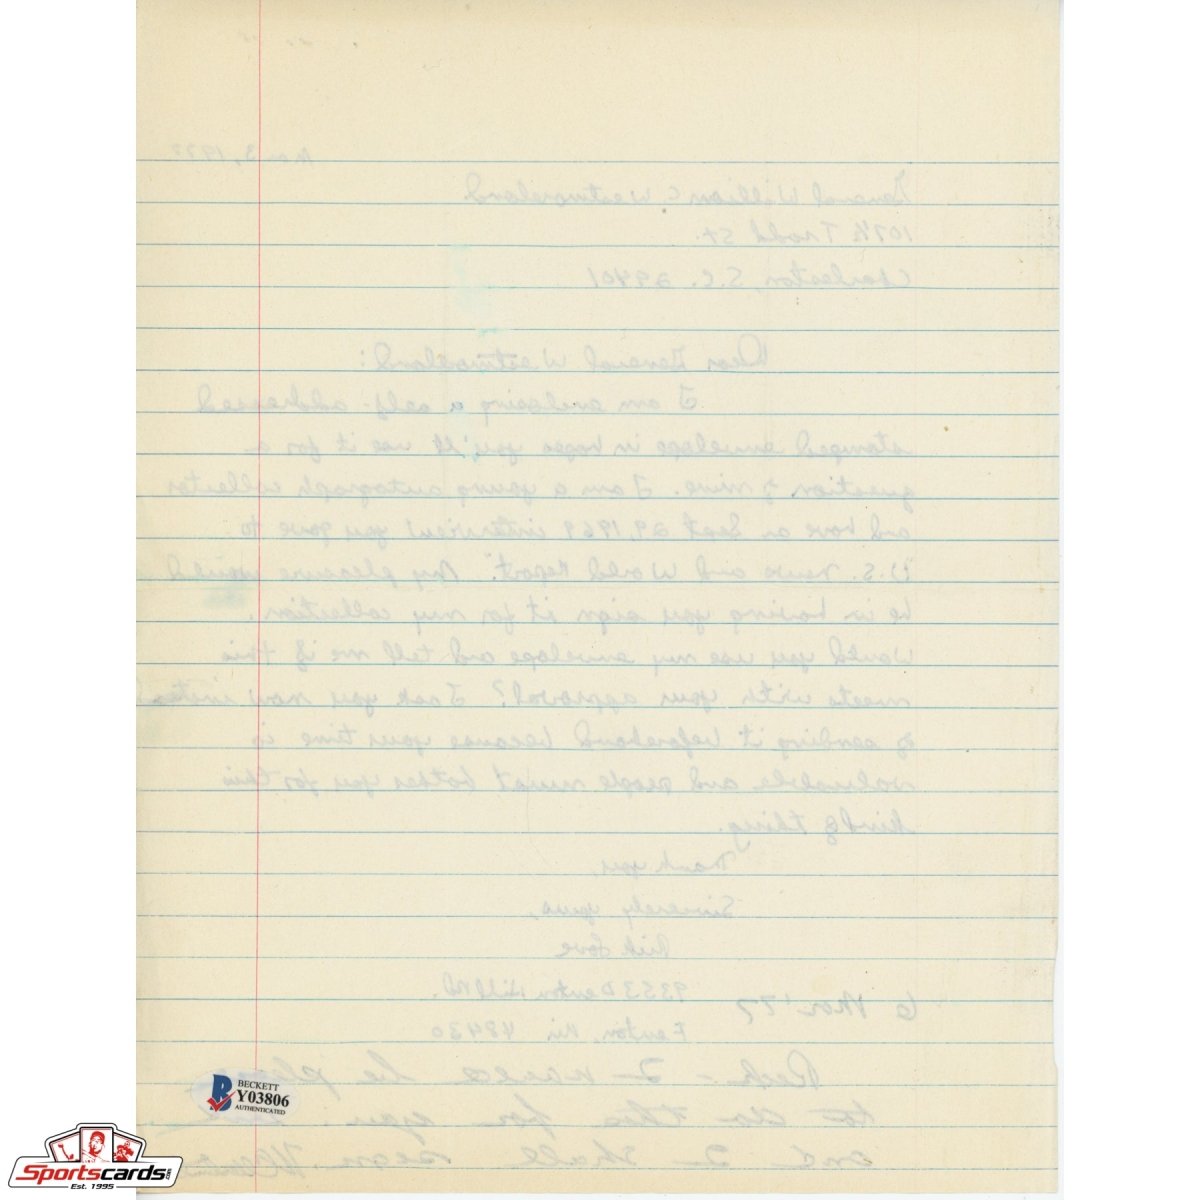 Mar 3, 1977
General William C Westmoreland
107½ Tradd St.
Charleston, S.C. 29401
Dear General Westmoreland:
I am enclosing a self-addressed
stamped envelope in hopes you'll use it for a
question of mine. I am a young autograph collector
and have an Sept 29, 1969 interview you gave to
U.S. News and World Report". My pleasure would
be in having you sign it for my collection.
Would you use my envelope and tell me if this
meets with your approval? I ask you now
of sending it beforehand because your time is
valuable and people must bother you for this
kind of thing.
Thank you,
Sincerely yours,
Rich Love
Denton Hill Rd.
Fenton, Mi. 48430
6 Mar '77
Rich - I would be
to do this for you.
and I shall sign
BECKETT
Y03806
AUTHENTICATED
Sportscards.com
Est. 1995